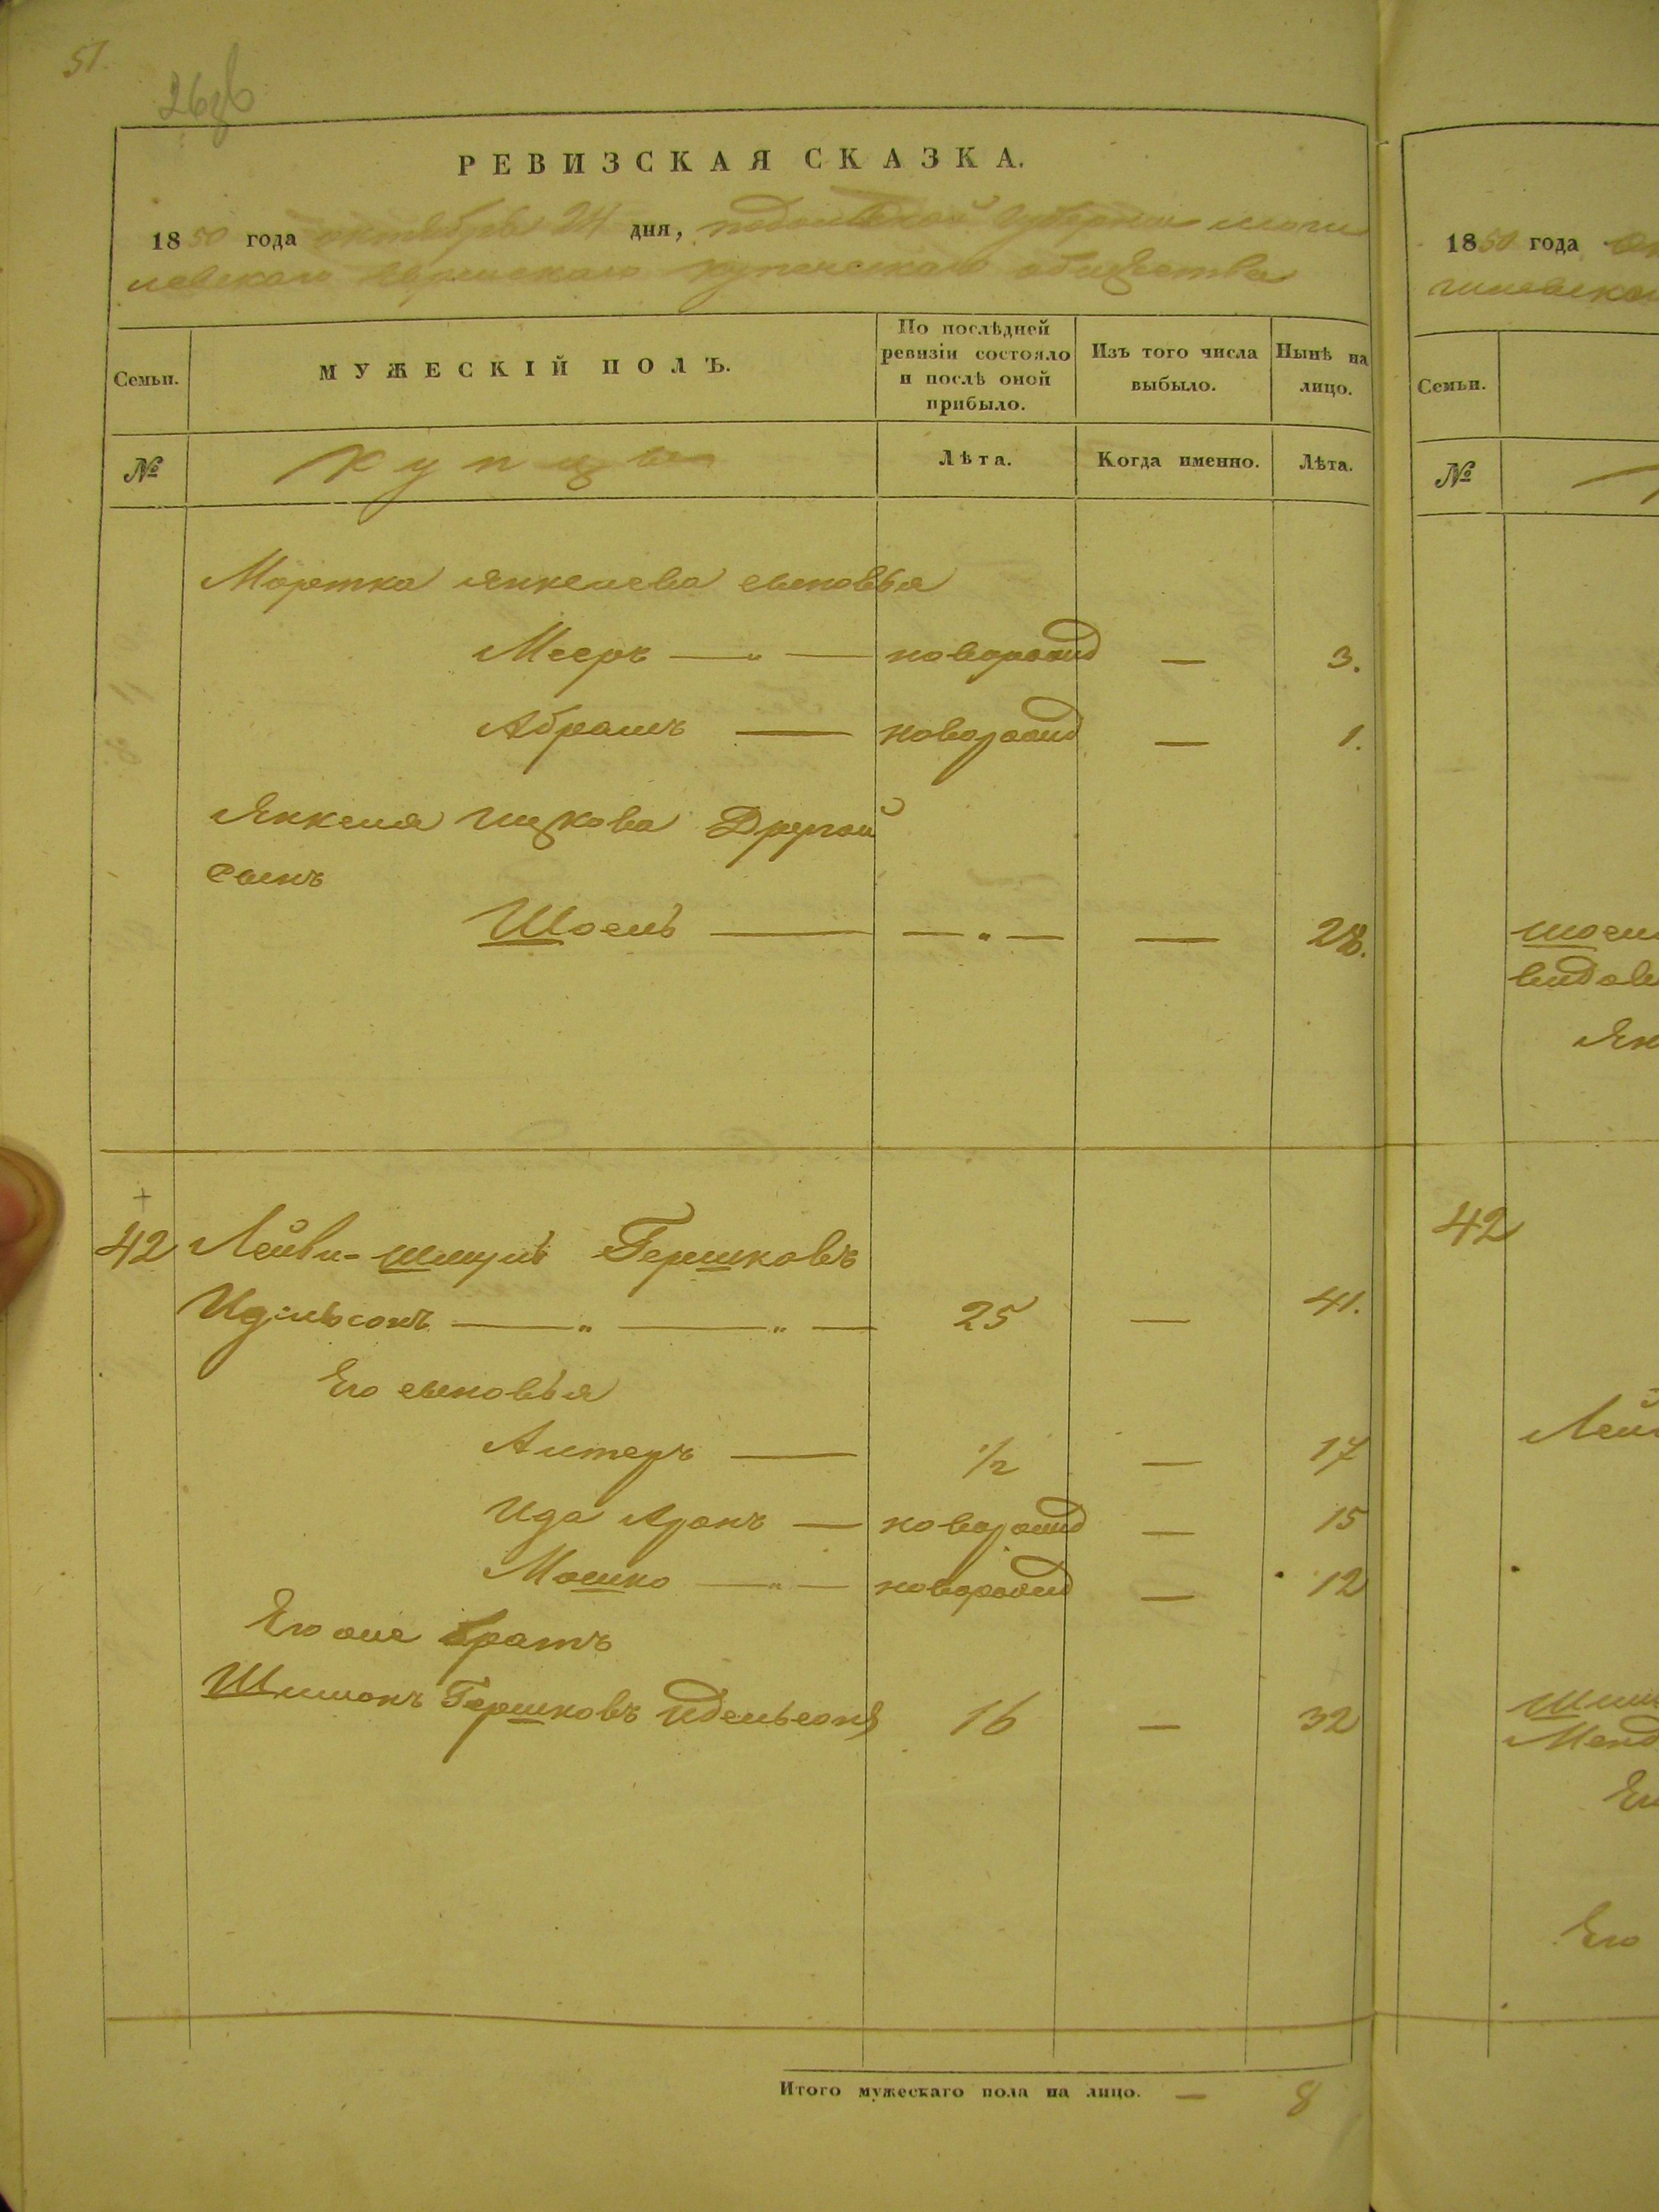 51.
26об
РЕВИЗСКАЯ СКАЗКА.
1850 года октября 24 дня, подольской губернии моги
левскаго еврейскаго купеческаго общества
Семьи.
МУЖЕСКІЙ ПОЛЪ.
По послѣдней ревизіи состояло и послѣ оной прибыло.
Изъ того числа выбыло.
Нынѣ на лицо.
№
Купцы
Лѣта.
Когда именно.
Лѣта.
Мортка Янкелева сыновья
Мееръ — новорожд — 3.
Абрамъ — новорожд — 1.
Янкеля Ицкова Другой
сынъ
Шоель — — „ — — 28.
42 Лейви-Шмуль Гершковъ
Идельсонъ — „ — „ — 25 — 41.
Его сыновья
Алтеръ — 1/2 — 17
Ида Аронъ — новорожд — 15
Мошко — „ — новорожд — 12
Его же братъ
Шлимонъ Гершковъ Идельсонъ 16 — 32
Итого мужескаго пола на лицо. — 8
1850 года
Семьи.
№
42